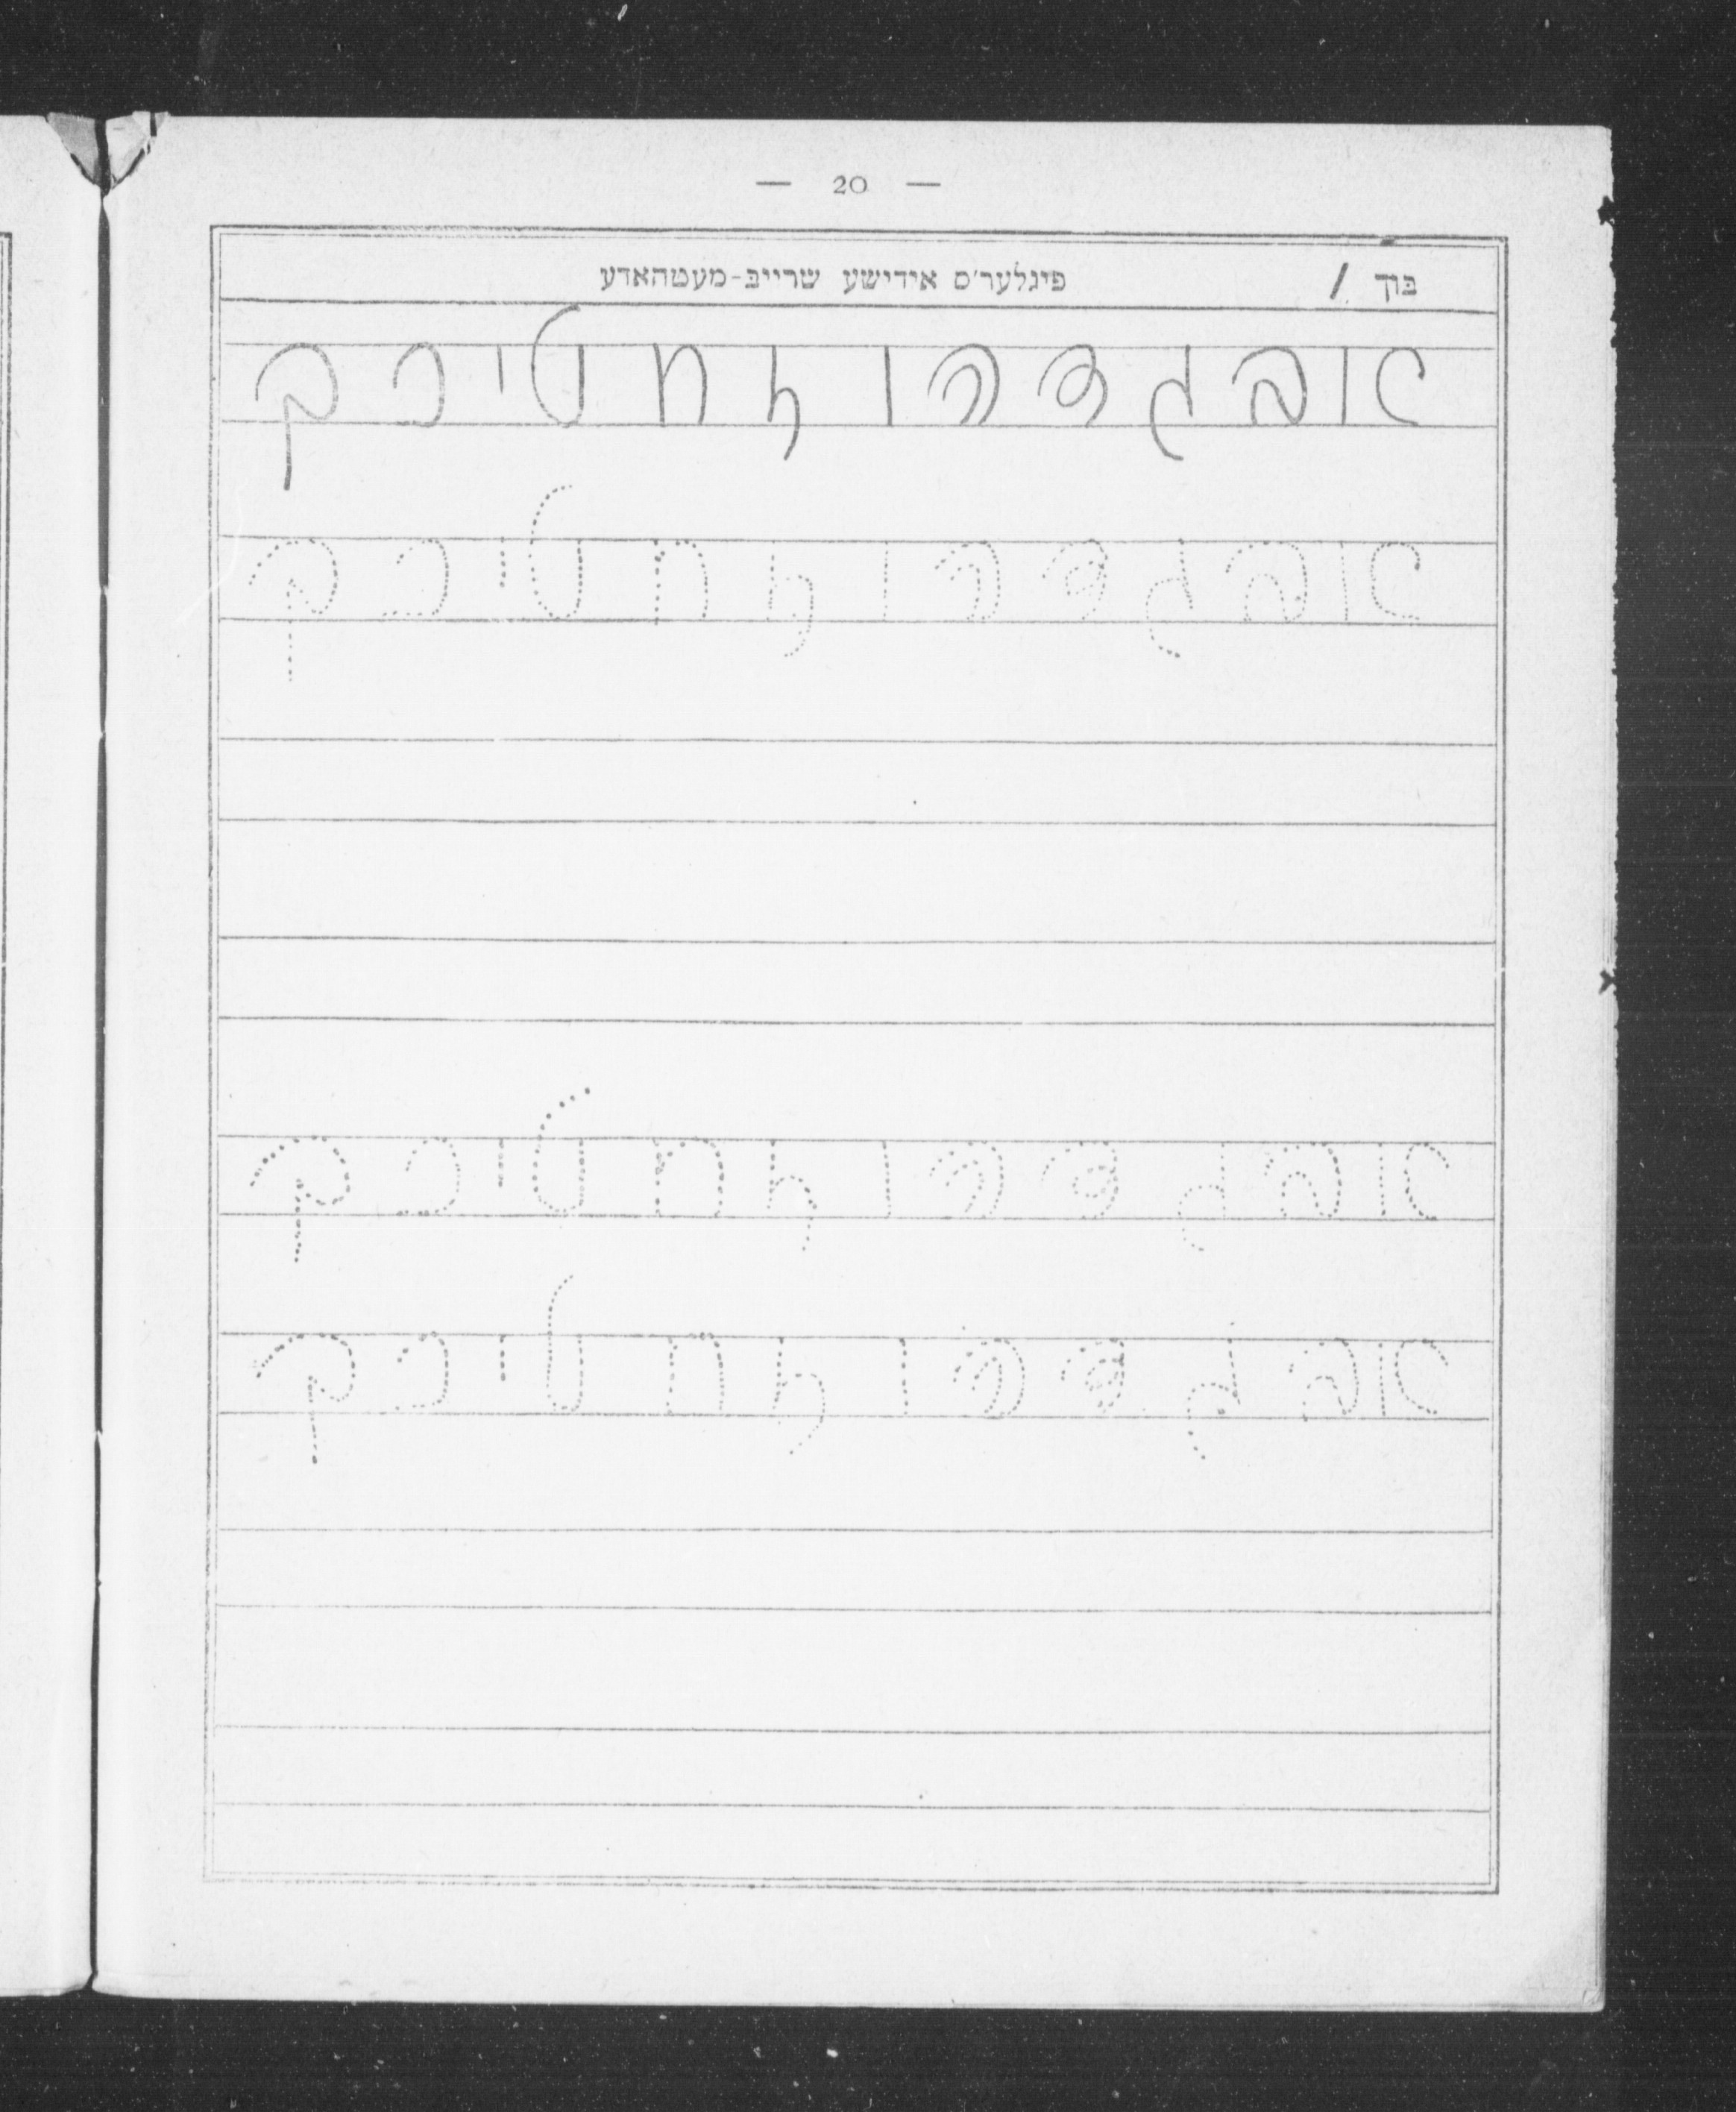 — 20 —
בוך 1 פיגלער׳ס אידישע שרייב-מעטהאדע
א ב ג ד ה ו ז ח ט י כ ך
א ב ג ד ה ו ז ח ט י כ ך
א ב ג ד ה ו ז ח ט י כ ך
א ב ג ד ה ו ז ח ט י כ ך